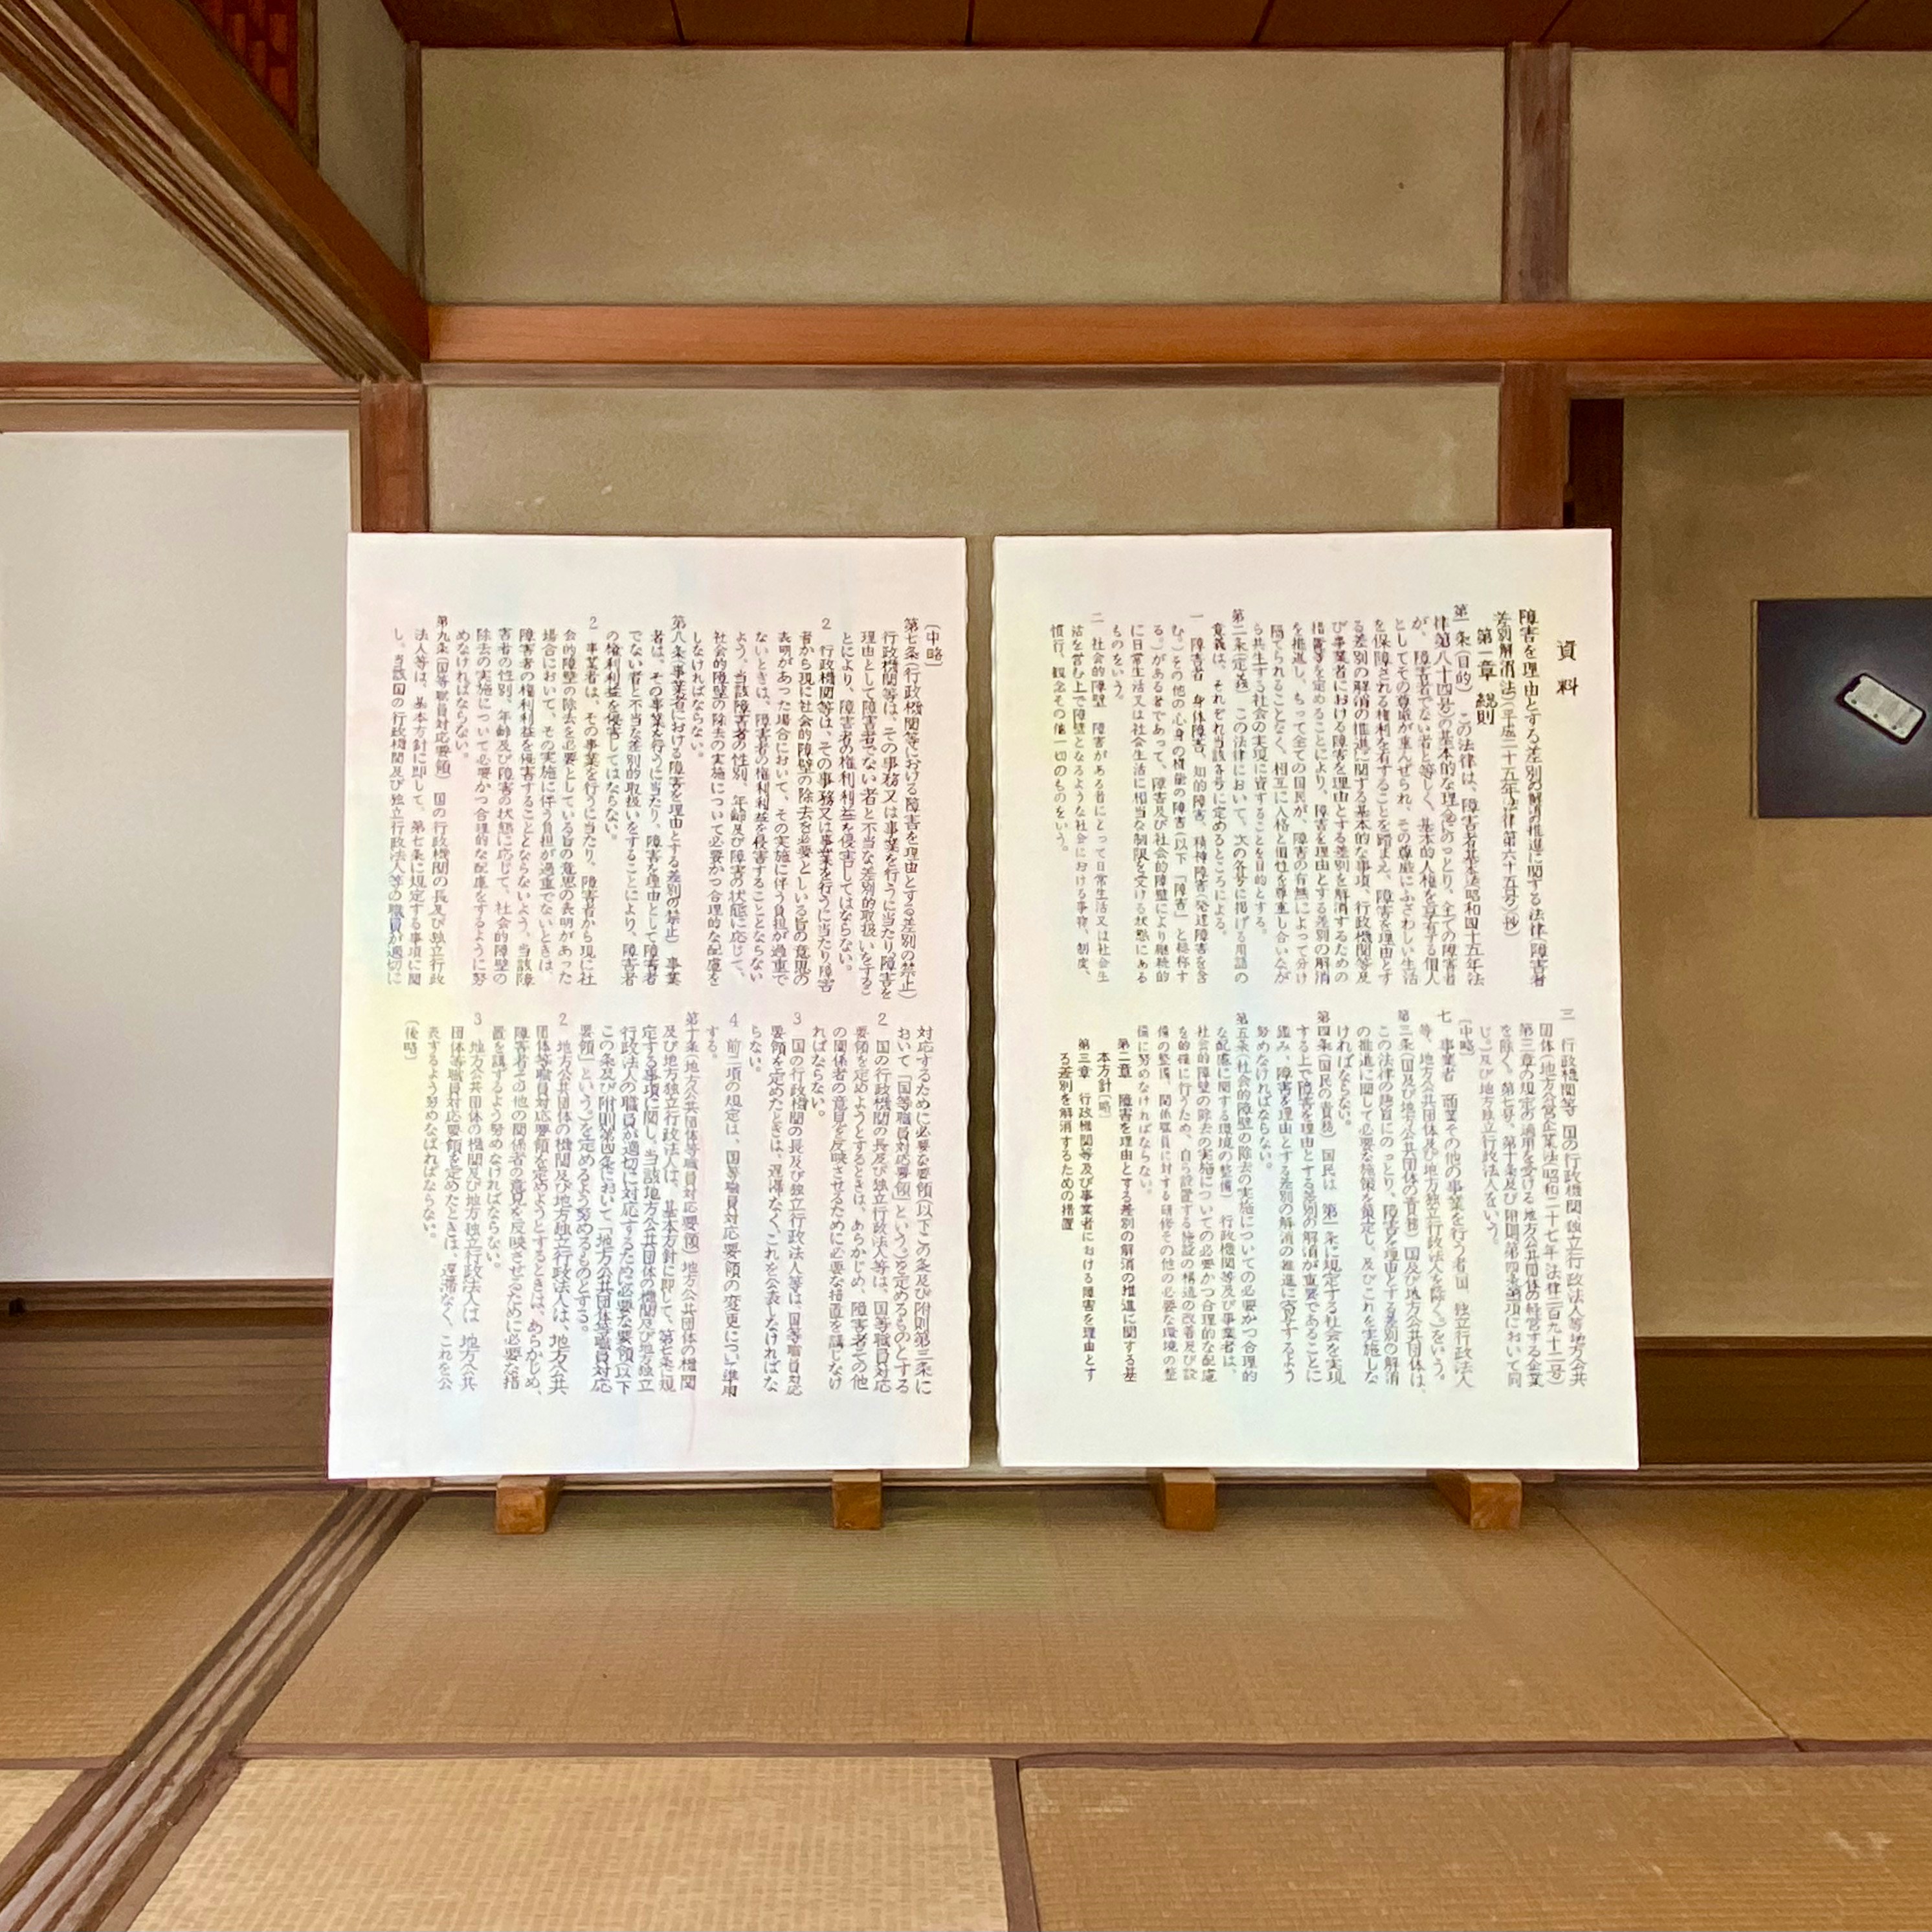 資料
障害を理由とする差別の解消推進に関する法律(障害者
差別解消法)(平成二十五年法律第六十五号)(抄)
第一章 総則
第一条(目的) この法律は、障害者基本法(昭和四十五年法
律第八十四号)の基本的な理念にのっとり、全ての障害者
が、障害者でない者と等しく、基本的人権を享有する個人
としてその尊厳が重んぜられ、その尊厳にふさわしい生活
を保障される権利を有することを踏まえ、障害を理由とす
る差別の解消の推進に関する基本的な事項、行政機関等及
び事業者における障害を理由とする差別を解消するための
措置等を定めることにより、障害を理由とする差別の解消
を推進し、もって全ての国民が、障害の有無によって分け
隔てられることなく、相互に人格と個性を尊重し合いなが
ら共生する社会の実現に資することを目的とする。
第二条(定義) この法律において、次の各号に掲げる用語の
意義は、それぞれ当該各号に定めるところによる。
一 障害者 身体障害、知的障害、精神障害(発達障害を含
む。)その他の心身の機能の障害(以下「障害」と総称す
る。)がある者であって、障害及び社会的障壁により継続的
に日常生活又は社会生活に相当な制限を受ける状態にある
ものをいう。
二 社会的障壁 障害がある者にとって日常生活又は社会生
活を営む上で障壁となるような社会における事物、制度、
慣行、観念その他一切のものをいう。
三 行政機関等 国の行政機関、独立行政法人等、地方公共
団体(地方公営企業法(昭和二十七年法律二百九十二号)
第三章の規定の適用を受ける地方公共団体の経営する企業
を除く。第七号、第十条及び附則第四条第一項において同
じ。)及び地方独立行政法人をいう。
〔中略〕
七 事業者 商業その他の事業を行う者(国、独立行政法人
等、地方公共団体及び地方独立行政法人を除く。)をいう。
第三条(国及び地方公共団体の責務) 国及び地方公共団体は、
この法律の趣旨にのっとり、障害を理由とする差別の解消
の推進に関して必要な施策を策定し、及びこれを実施しな
ければならない。
第四条(国民の責務) 国民は、第一条に規定する社会を実現
する上で障害を理由とする差別の解消が重要であることに
鑑み、障害を理由とする差別の解消の推進に寄与するよう
努めなければならない。
第五条(社会的障壁の除去の実施についての必要かつ合理的
な配慮に関する環境の整備) 行政機関等及び事業者は、
社会的障壁の除去の実施についての必要かつ合理的な配慮
を的確に行うため、自ら設置する施設の構造の改善及び設
備の整備、関係職員に対する研修その他の必要な環境の整
備に努めなければならない。
第二章 障害を理由とする差別の解消の推進に関する基
本方針〔略〕
第三章 行政機関等及び事業者における障害を理由とす
る差別を解消するための措置
〔中略〕
第七条(行政機関等における障害を理由とする差別の禁止)
行政機関等は、その事務又は事業を行うに当たり、障害を
理由として障害者でない者と不当な差別的取扱いをする
ことにより、障害者の権利利益を侵害してはならない。
2 行政機関等は、その事務又は事業を行うに当たり、障害
者から現に社会的障壁の除去を必要としいる旨の意思の
表明があった場合において、その実施に伴う負担が過重で
ないときは、障害者の権利利益を侵害することとならない
よう、当該障害者の性別、年齢及び障害の状態に応じて、
社会的障壁の除去の実施について必要かつ合理的な配慮を
しなければならない。
第八条(事業者における障害を理由とする差別の禁止) 事業
者は、その事業を行うに当たり、障害を理由として障害者
でない者と不当な差別的取扱いをすることにより、障害者
の権利利益を侵害してはならない。
2 事業者は、その事業を行うに当たり、障害者から現に社
会的障壁の除去を必要としている旨の意思の表明があった
場合において、その実施に伴う負担が過重でないときは、
障害者の権利利益を侵害することとならないよう、当該障
害者の性別、年齢及び障害の状態に応じて、社会的障壁の
除去の実施について必要かつ合理的な配慮をするように努
めなければならない。
第九条(国等職員対応要領) 国の行政機関の長及び独立行政
法人等は、基本方針に即して、第七条に規定する事項に関
し、当該国の行政機関及び独立行政法人等の職員が適切に
対応するために必要な要領(以下この条及び附則第三条に
おいて「国等職員対応要領」という。)を定めるものとする
2 国の行政機関の長及び独立行政法人等は、国等職員対応
要領を定めようとするときは、あらかじめ、障害者その他
の関係者の意見を反映させるために必要な措置を講じなけ
ればならない。
3 国の行政機関の長及び独立行政法人等は、国等職員対応
要領を定めたときは、遅滞なく、これを公表しなければな
らない。
4 前二項の規定は、国等職員対応要領の変更につい準用
する。
第十条(地方公共団体等職員対応要領) 地方公共団体の機関
及び地方独立行政法人は、基本方針に即して、第七条に規
定する事項に関し、当該地方公共団体の機関及び地方独立
行政法人の職員が適切に対応するために必要な要領(以下
この条及び附則第四条において「地方公共団体等職員対応
要領」という。)を定めるよう努めるものとする。
2 地方公共団体の機関及び地方独立行政法人は、地方公共
団体等職員対応要領を定めようとするときは、あらかじめ、
障害者その他の関係者の意見を反映させるために必要な措
置を講するよう努めなければならない。
3 地方公共団体の機関及び地方独立行政法人は、地方公共
団体等職員対応要領を定めたときは、遅滞なく、これを公
表するよう努めなければならない。
〔後略〕